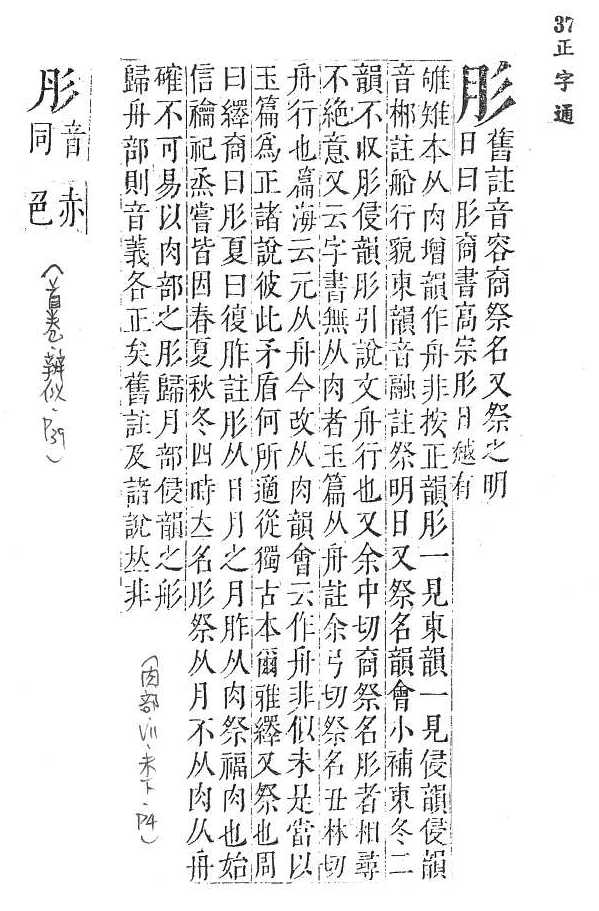 37正字通
肜
舊註音容商祭名又祭之明
日曰肜商書高宗肜日越有
雊雉本从肉增韻作舟非按正韻肜一見東韻一見侵韻侵韻
音郴註船行貌東韻音融註祭明日又祭名韻會小補東冬二
韻不收肜侵韻肜引說文舟行也又余中切商祭名肜者相尋
不絶意又云字書無从肉者玉篇从舟註余弓切祭名丑林切
舟行也篇海云元从舟今改从肉韻會云作舟非似未是當以
玉篇爲正諸說彼此矛盾何所適從獨古本爾雅繹又祭也周
曰繹商曰肜夏曰復胙註肜从日月之月胙从肉祭福肉也始
信禴祀烝嘗皆因春夏秋冬四時立名肜祭从月不从肉从舟
確不可易以肉部之肜歸月部侵韻之彤
歸舟部則音義各正矣舊註及諸說𠀤非
彤
音同
赤色
(首卷、辨似、P39)
(肉部、VII、未下、P4)